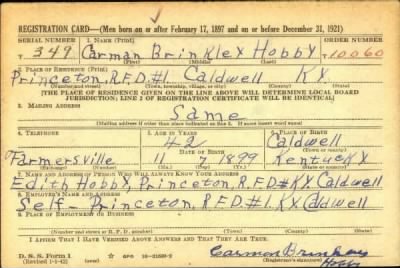 REGISTRATION CARD—(Men born on or after February 17, 1897 and on or before December 31, 1921)
SERIAL NUMBER 1. NAME (Print) ORDER NUMBER
T 349 Carman Brinkley Hobby T10060
(First) (Middle) (Last)
2. PLACE OF RESIDENCE (Print)
Princeton, R.F.D.#1. Caldwell KY
(Number and street) (Town, township, village, or city) (County) (State)
[THE PLACE OF RESIDENCE GIVEN ON THE LINE ABOVE WILL DETERMINE LOCAL BOARD
JURISDICTION; LINE 2 OF REGISTRATION CERTIFICATE WILL BE IDENTICAL]
3. MAILING ADDRESS
Same
(Mailing address if other than place indicated on line 2. If same insert word same)
4. TELEPHONE 5. AGE IN YEARS 6. PLACE OF BIRTH
42 Caldwell
DATE OF BIRTH
Farmersville 11 7 1899 Kentucky
7. NAME AND ADDRESS OF PERSON WHO WILL ALWAYS KNOW YOUR ADDRESS
Edith Hobby, Princeton, R.F.D.#1 KY Caldwell
8. EMPLOYER'S NAME AND ADDRESS
Self Princeton, R.F.D.#1. KY Caldwell
9. PLACE OF EMPLOYMENT OR BUSINESS
(Number and street or R. F. D. number) (Town) (County) (State)
I AFFIRM THAT I HAVE VERIFIED ABOVE ANSWERS AND THAT THEY ARE TRUE.
D. S. S. Form 1
(Revised 1-1-42) (over) GPO 16—21630-2 Carman Brinkley
Hobby
(Registrant's signature)